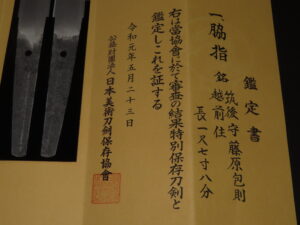 鑑定書
一、脇指 銘 筑後守藤原包則
越前住
長一尺七寸八分
右は當協會に於て審査の結果特別保存刀剣と
鑑定しこれを証する
令和元年五月二十三日
公益財團法人日本美術刀剣保存協會